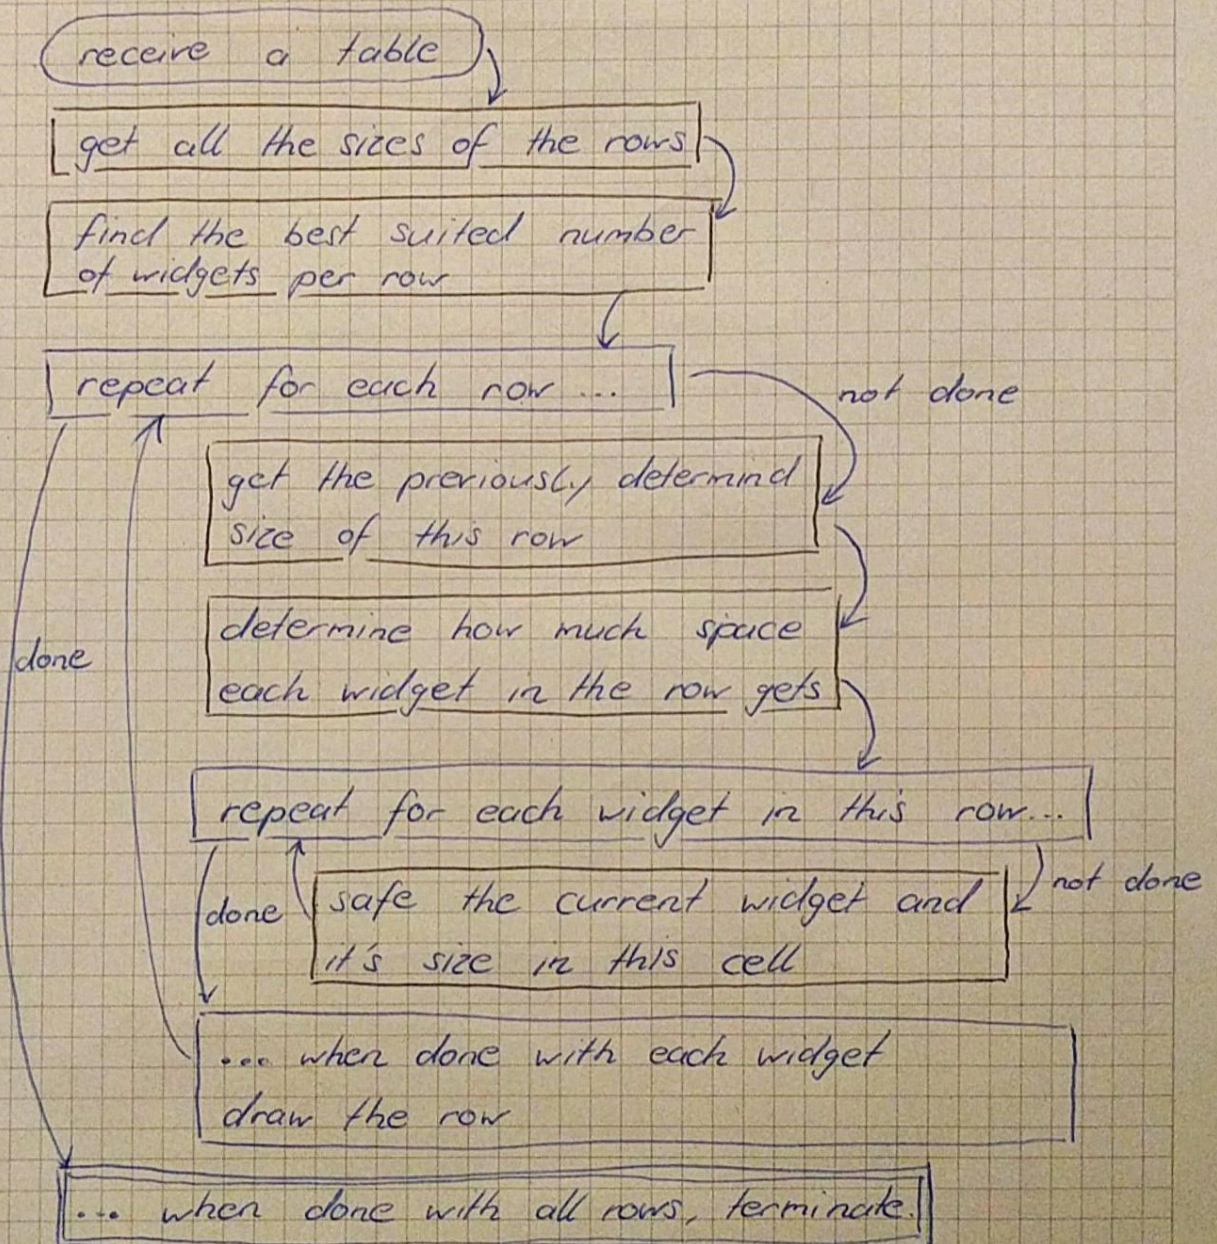 receive a table
get all the sizes of the rows
find the best suited number
of widgets per row
repeat for each row ...
not done
get the previously determind
size of this row
determine how much space
each widget in the row gets
done
repeat for each widget in this row...
not done
done
safe the current widget and
it's size in this cell
... when done with each widget
draw the row
... when done with all rows, terminate.